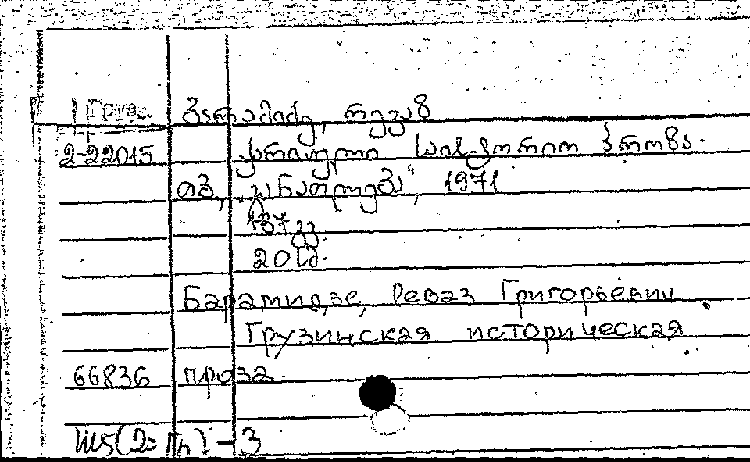 Груз. ბარამიძე, რევაზ
2-22015 ქართული საისტორიო პროზა.
თბ., „განათლება", 1971
187 გვ.
20 სმ.
Барамидзе, Реваз Григорьевич
Грузинская историческая
66836 проза
Ш5(2=Гр) - 3